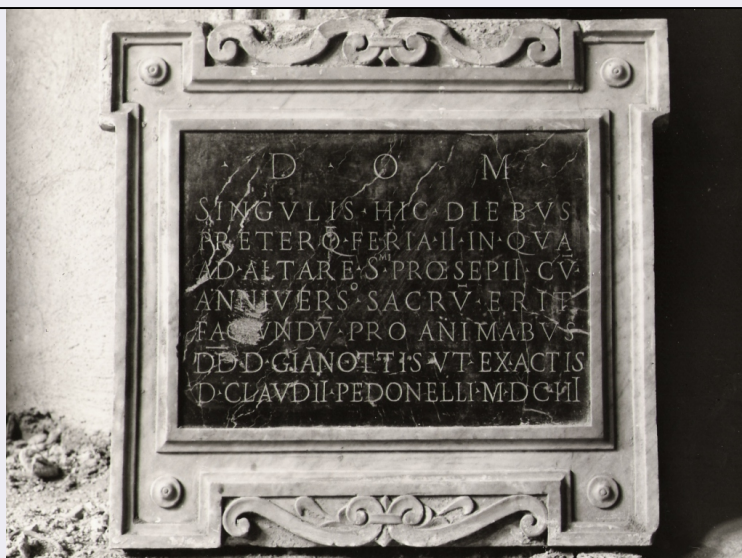 · D · O · M ·
SINGVLIS · HIC · DIEBVS
PRETERQ̄ · FERIA · II · IN · QVA
AD · ALTARE · Sᴹᴵ · PRŒSEPII · CV̄ ·
ANNIVERSº SACRV̄ · ERIT
V̄ · PRO ANIMABVS
DDD · GIAN̄OTTIS · VT · EXACTIS
D · CLAVDII · PEDONELLI · M · DC · III